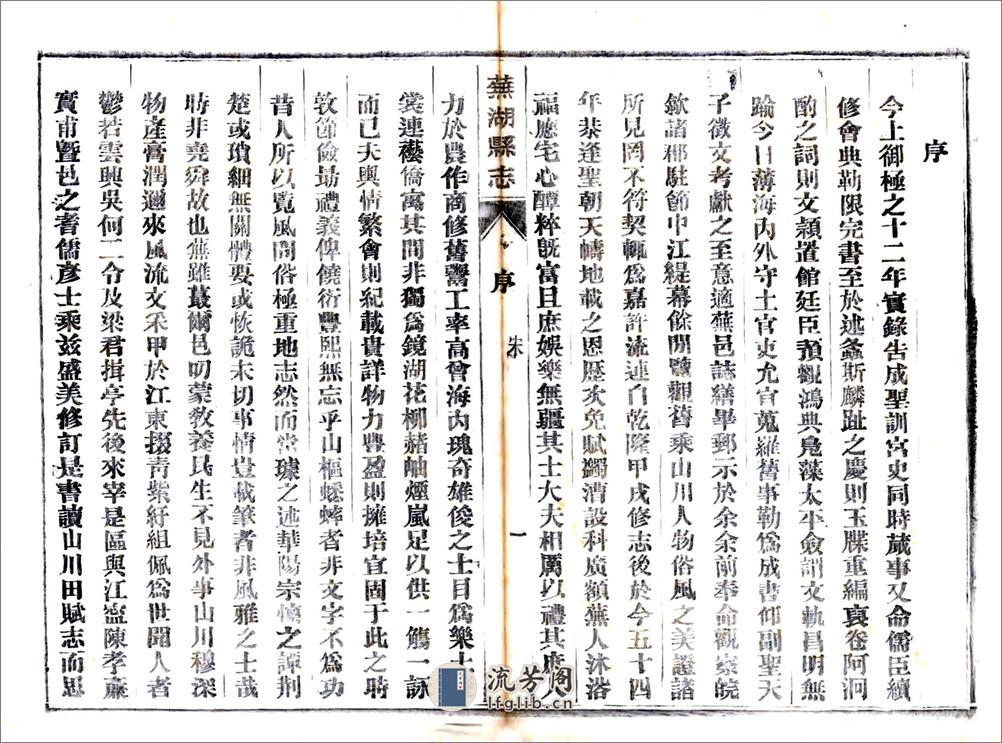 序
今上御極之十二年實錄告成聖訓宮史同時蕆事又命儒臣續
修會典勒限完書至於述螽斯麟趾之慶則玉牒重編裒卷阿泂
酌之詞則文穎置館廷臣預觀鴻典凫藻太平僉謂文軌昌明無
踰今日薄海內外守土官吏尤宜蒐羅舊事勒為成書仰副聖天
子徵文考獻之至意適蕪邑誌繕畢郵示於余余前奉命觀察皖
歙諸郡駐節中江緹幕餘閒覽觀舊乘山川人物俗風之美證諸
所見罔不符契輒為嘉許流連自乾隆甲戌修志後於今五十四
年恭逢聖朝天幬地載之恩歷次免賦蠲漕設科廣額蕪人沐洛
福應宅心醰粹旣富且庶娛樂無疆其士大夫相厲以禮其庶人
蕪湖縣志
序
朱
一
力於農作商修舊鬻工率高曾海內瑰奇雄俊之士目為樂土
裳連襼僑寓其間非獨為鏡湖花柳赭岫煙嵐足以供一觴一詠
而已夫輿情繁會則紀載貴詳物力豐盈則擁培宜固于此之時
敦節儉勗禮義俾饒衍豐熙無忘乎山樞蟋蟀者非文字不為功
昔人所以覧風問俗極重地志然而常璩之述華陽宗懍之譚荆
楚或瑣細無關體要或恢詭未切事情豈載筆者非風雅之士哉
時非堯舜故也蕪雖蕞爾邑叨蒙教養民生不見外事山川穆深
物產膏潤邇來風流文采甲於江東掇青紫紆組佩為世聞人者
鬱若雲興吳何二令及梁君揖亭先後來宰是區與江寍陳孝廉
實甫暨邑之耆儒彥士乘玆盛美修訂是書讀山川田賦志而思
流芳阁
lfglib.cn